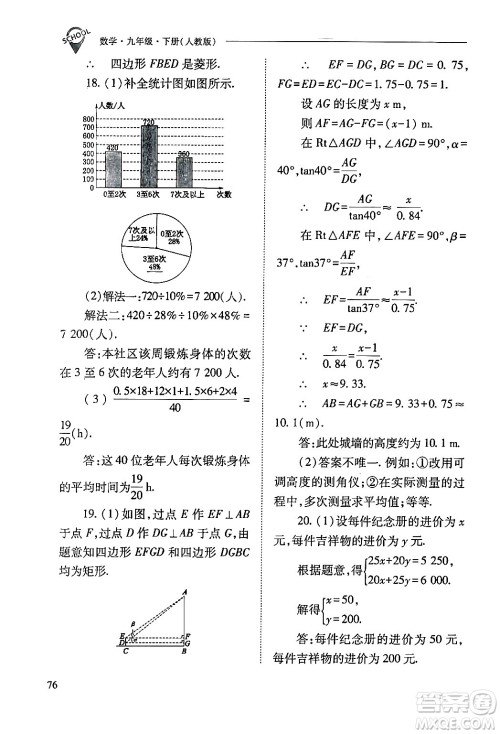 SCHOOL
数学·九年级·下册(人教版)
∴ 四边形 FBED 是菱形.
18. (1)补全统计图如图所示.
人数/人
800
700
600
500
400
300
200
100
0
420
720
360
0至2次 3至6次 7次及以上 次数
7次及以上24%
0至2次 28%
3至6次 48%
(2)解法一:720÷10%=7 200(人).
解法二:420÷28%÷10%×48%=
7 200(人).
答:本社区该周锻炼身体的次数
在 3 至 6 次的老年人约 7 200 人.
(3) (0.5×18+12×1+1.5×6+2×4)/40 =
19/20(h).
答:这 40 位老年人每次锻炼身体
的平均时间为19/20 h.
19. (1)如图,过点 E 作 EF⊥AB
于点 F,过点 D 作 DG⊥AB 于点 G,由
题意知四边形 EFGD 和四边形 DGBC
均为矩形.
A
β
E F
D α G
C B
∴ EF=DG,DG=BC=0.75,
FG=ED=EC-DC=1.75-0.75=1.
设 AG 的长度为 x m,
则 AF=AG-FG=(x-1) m.
在 Rt△AGD 中,∠AGD=90°,α=
40°,tan40°=AG/DG,
∴ DG=AG/tan40°≈x/0.84.
在 Rt△AFE 中,∠AFE=90°,β=
37°,tan37°=AF/EF,
∴ EF=AF/tan37°≈(x-1)/0.75.
∵ EF=DG,
∴ x/0.84=(x-1)/0.75.
∴ x≈9.33.
∴ AB=AG+GB=9.33+0.75≈
10.1(m).
答:此处城墙的高度约为 10.1 m.
(2)答案不唯一. 例如:①改用可
调高度的测角仪;②在实际测量的过
程中,多次测量求平均值;等等.
20. (1)设每件纪念册的进价为 x
元,每件吉祥物的进价为 y 元.
根据题意,得{25x+20y=5 250,
20x+25y=6 000.
解得{x=50,
y=200.
答:每件纪念册的进价为 50 元,
每件吉祥物的进价为 200 元.
76